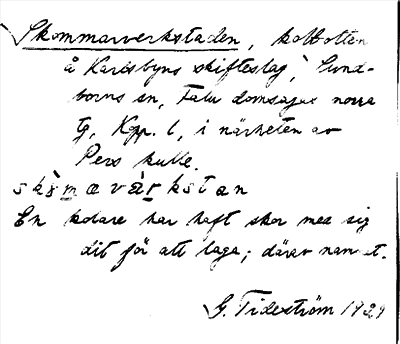 Skommarverkstaden, kolbotten
å Karlsbyns skifteslag, Sund-
borns sn, Falu domsagas norra
tg, Kopp. l, i närheten av
Pers kulle.
En kolare har haft skor med sig
dit för att laga; därav namnet.
G. Tideström 1929